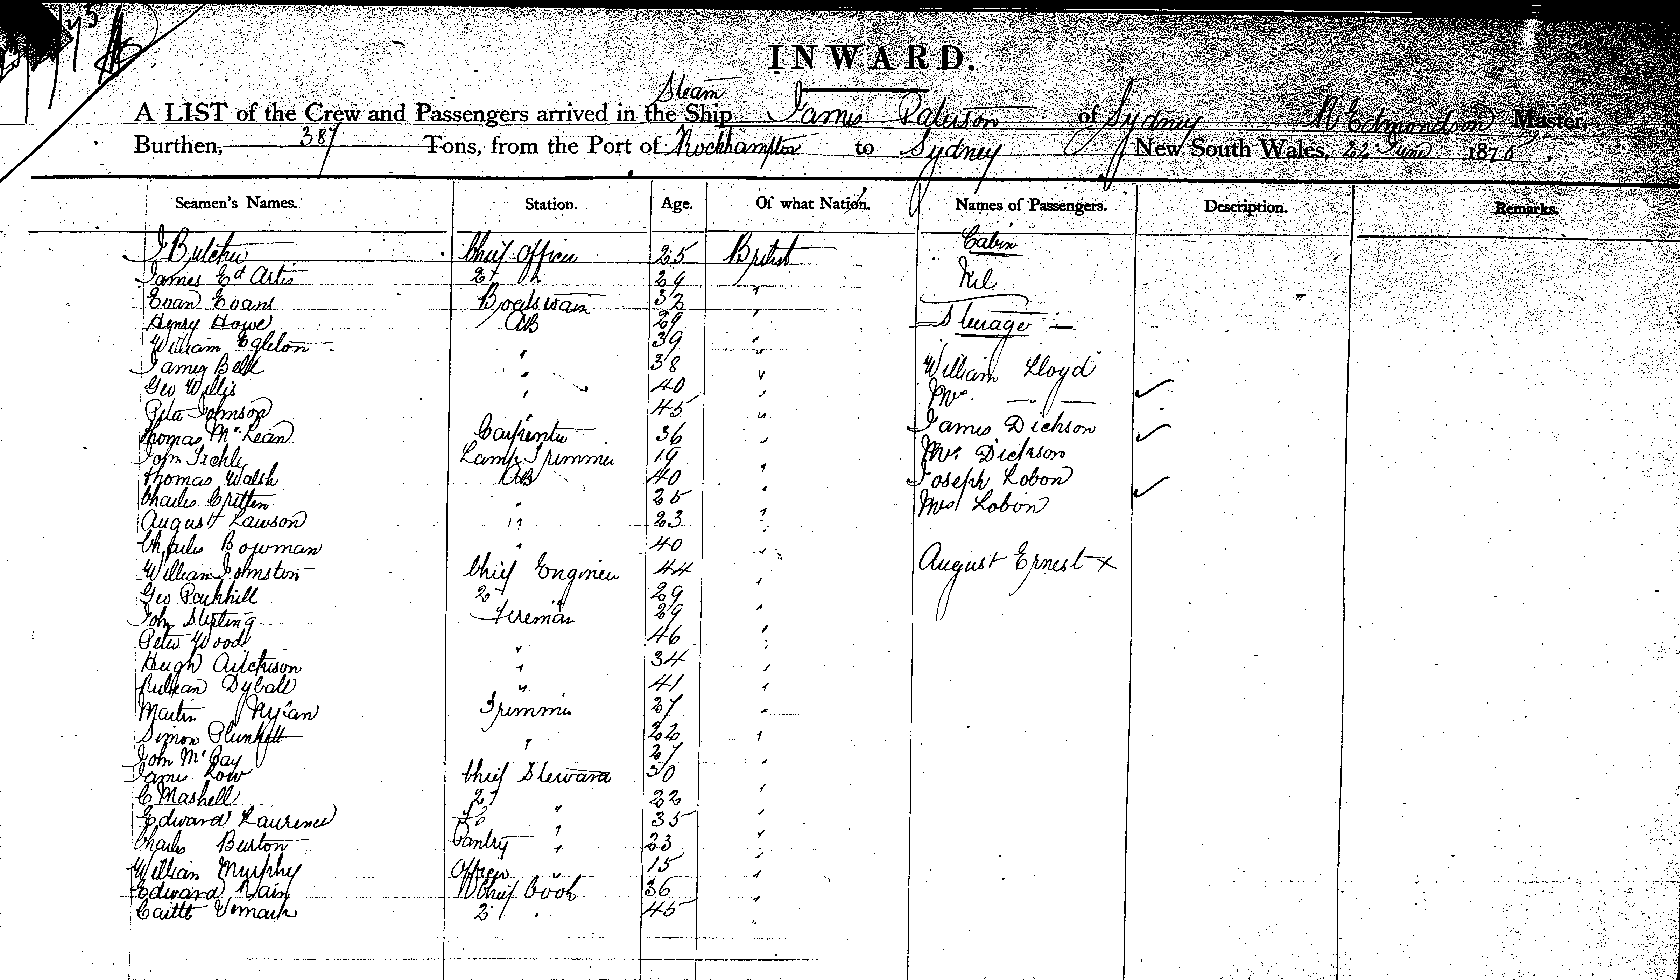 INWARD.
Steam
A LIST of the Crew and Passengers arrived in the Ship James Paterson of Sydney R Edmondson Master,
Burthen, 387 Tons, from the Port of Rockhampton to Sydney New South Wales, 22 June 1875
Seamen's Names. Station. Age. Of what Nation. Names of Passengers. Description. Remarks.
J Butcher Chief Officer 25 British Cabin
James Ed Artis 2d " 24 " Nil
Evan Evans Boatswain 32 "
Henry Howe AB 29 " Steerage
William Egleton " 39 "
James Bell " 38 " William Lloyd
Geo Willis " 40 " Mrs — —
Peter Johnson " 45 "
Thomas McLean Carpenter 36 " James Dickson
John Lamp Trimmer 19 " Mrs Dickson
Thomas Walsh AB 40 " Joseph Lobon
Charles " 25 " Mrs Lobon
August Lawson " 23 "
Charles Bowman " 40 "
William Johnston Chief Engineer 44 " August Ernest x
Geo Parkhill 2d " 29 "
John Stirling Fireman 29 "
Peter Wood " 46 "
Hugh Aitchison " 34 "
Dyball " 41 "
Martin Ryan Trimmer 27 "
Simon Plunkett " 22 "
John McCay 27
James Low Chief Steward 30 "
C Mashell 2d " 22 "
Edward Laurence " 35 "
Charles Burton Pantry " 23 "
William Murphy Officers " 15 "
Edward Rain Chief Cook 36 "
2d " 45 "